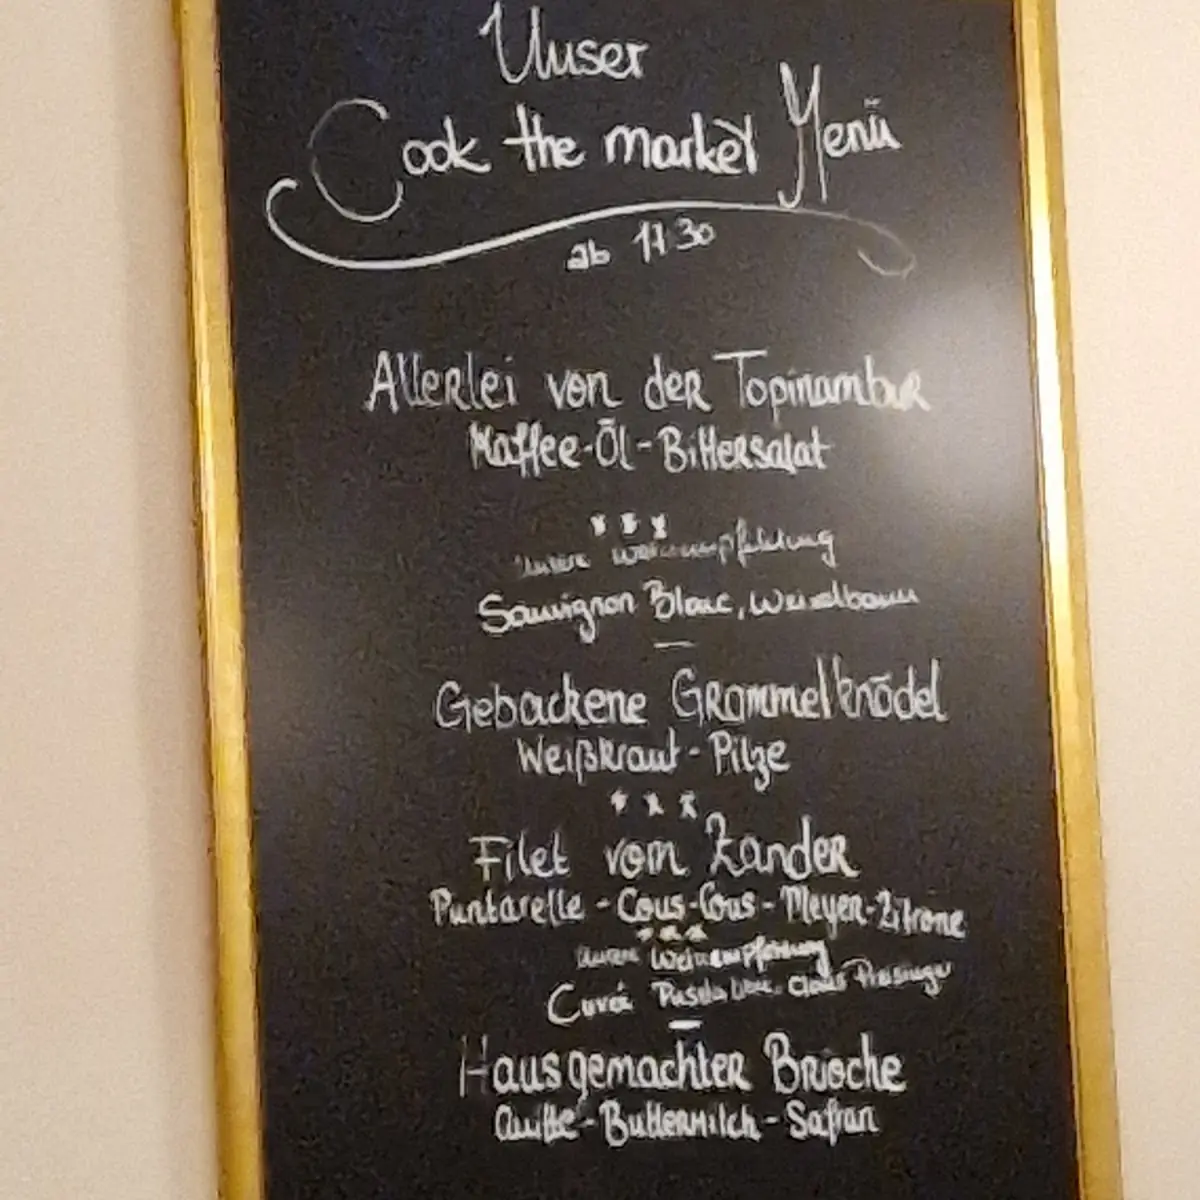 Unser
Cook the market Menü
ab 17 30
Allerlei von der Topinambur
Kaffee-Öl-Bittersalat
Unsere Weinempfehlung
Sauvignon Blanc,
Gebackene Grammelknödel
Weißkraut - Pilze
Filet vom Zander
Puntarelle - Cous-Cous - Meyer-Zitrone
Unsere Weinempfehlung
Cuveé Claus Preisinger
Hausgemachter Brioche
Quitte - Buttermilch - Safran